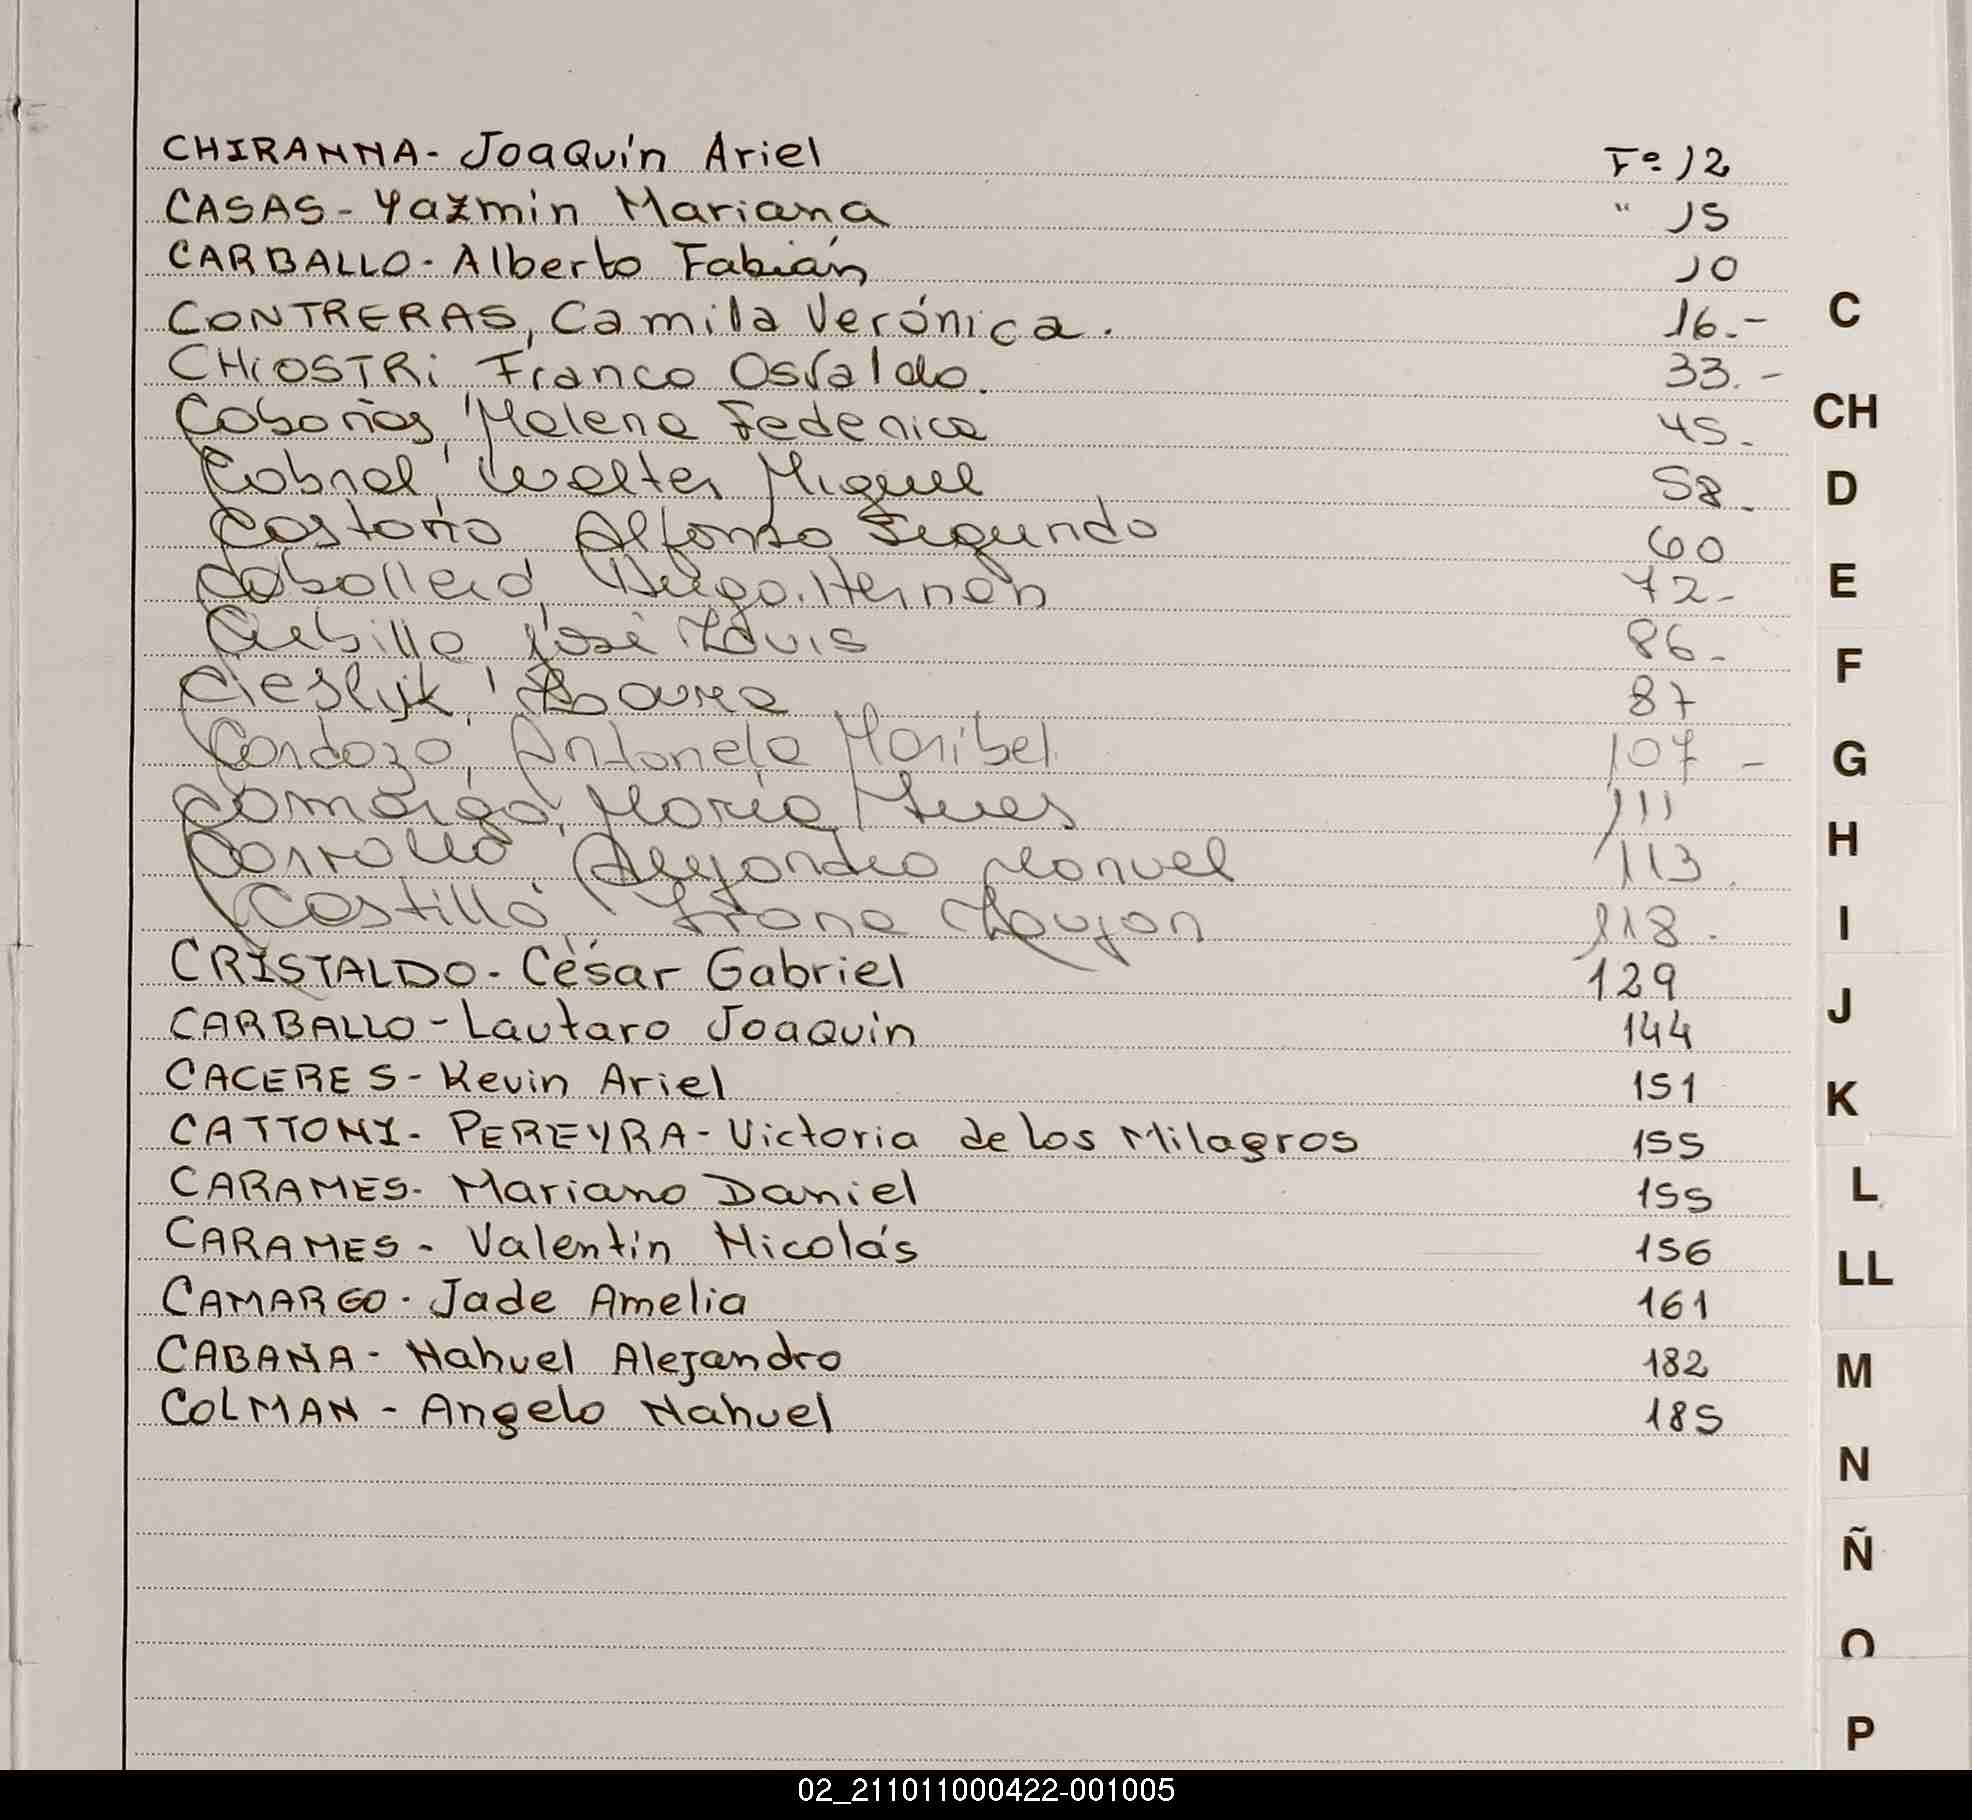 CHIRANNA - Joaquín Ariel Fº 12
CASAS - Yazmin Mariana " 15
CARBALLO - Alberto Fabián 10
CONTRERAS, Camila Verónica. 16.-
CHiOSTRi Franco Osvaldo. 33.-
Cabañas, Malena Federica 45.-
Cabral, Walter Miguel 58.-
Castaño Alfonso Segundo 60
Caballero, Diego Hernán 72-
Cubilla José Luis 86-
Cieslyk, Laura 87
Cardozo, Antonela Maribel 107-
Camargo, María Ines 111
Carrallo Alejandro Manuel 113
Castillo Luján 118.
CRISTALDO - César Gabriel 129
CARBALLO - Lautaro Joaquin 144
CACERES - Kevin Ariel 151
CATTONI - PEREYRA - Victoria de los Milagros 155
CARAMES - Mariano Daniel 155
CARAMES - Valentín Nicolás 156
CAMARGO - Jade Amelia 161
CABAÑA - Nahuel Alejandro 182
COLMAN - Angelo Nahuel 185
C
CH
D
E
F
G
H
I
J
K
L
LL
M
N
Ñ
O
P
02_211011000422-001005